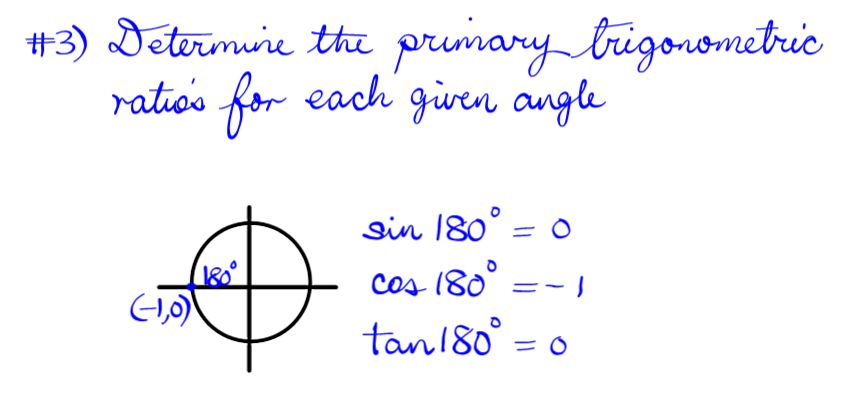 #3) Determine the primary trigonometric
ratio's for each given angle
180°
(-1,0)
sin 180° = 0
cos 180° = -1
tan 180° = 0